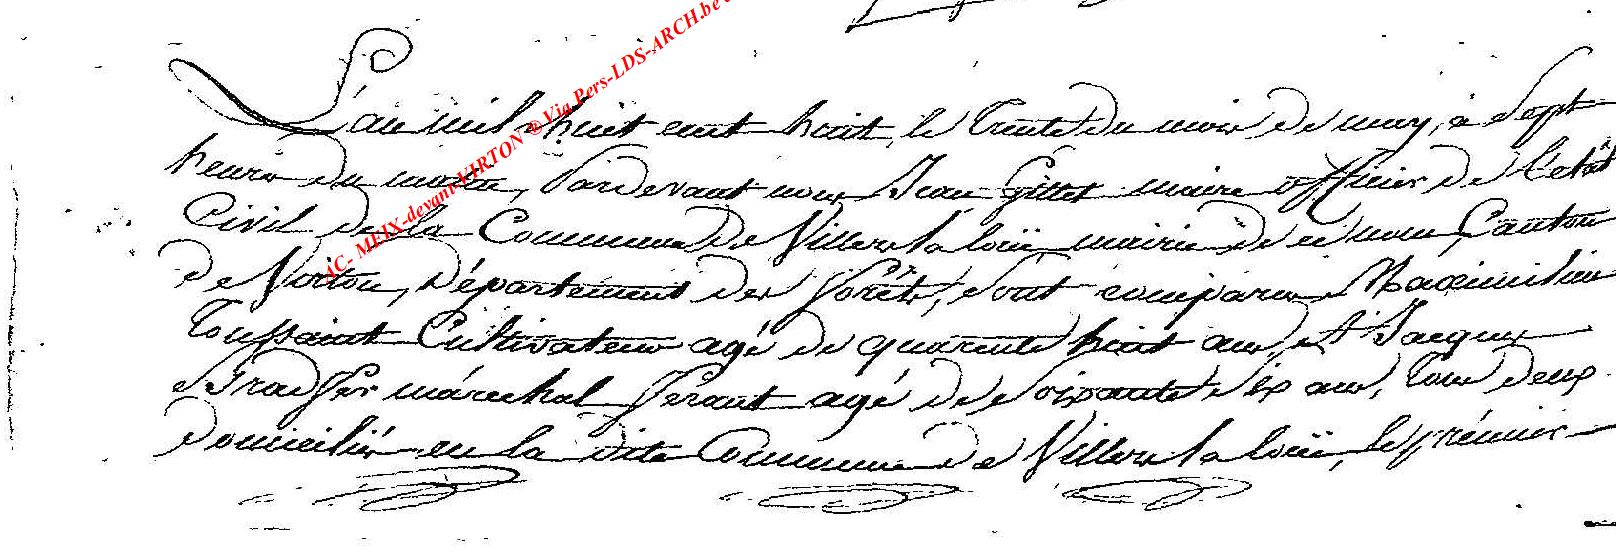 AC- MEIX-devant-VIRTON ® Via Pers-LDS-ARCH.be
L'an mil huit cent huit, le trente du mois de may, à sept
heures du matin, Pardevant nous Jean Gillet maire officier de l'etat
Civil de la Commune de Villers la loüe mairie de ce nom, Canton
de Virton, Département des forêts, sont comparus Maximilien
Toussaint Cultivateur agé de quarente huit ans, et Jacques
maréchal ferant agé de soixante six ans, tous deux
domiciliés en la dite Commune de Villers la loüe, le prémier